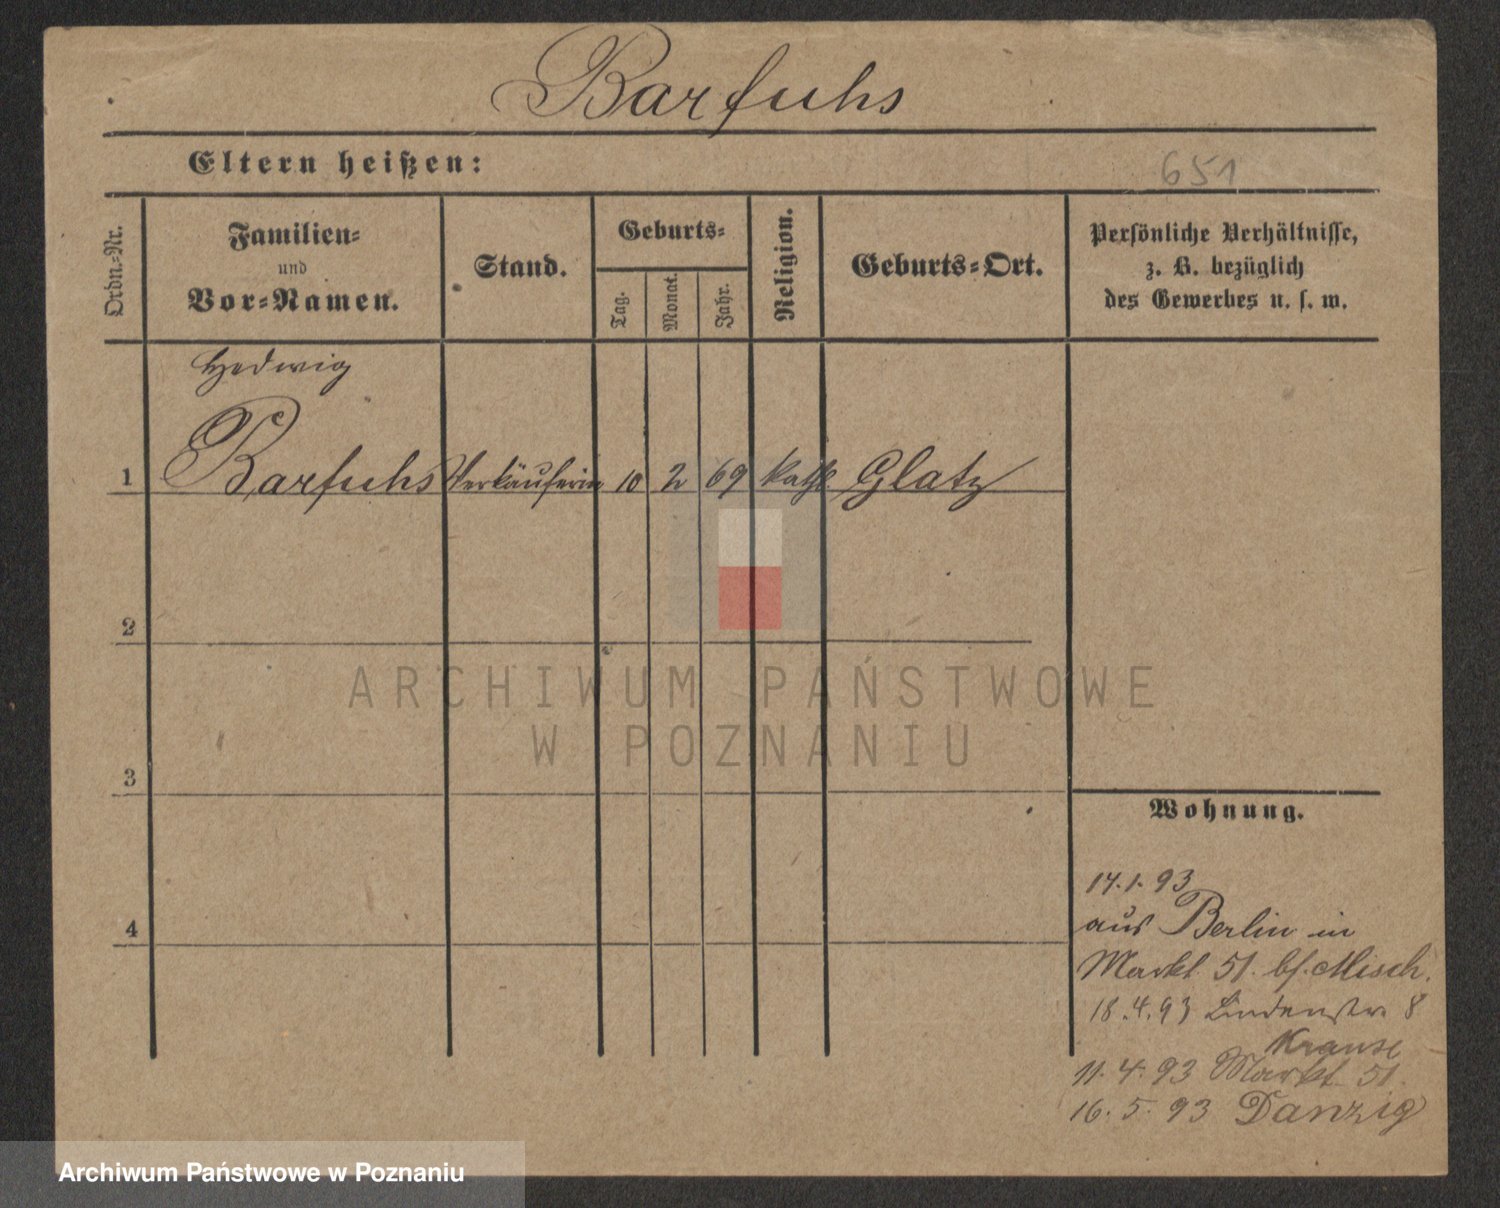 Barfuhs
Eltern heißen:
651
Ordn.-Nr.
Familien-
und
Vor-Namen.
Stand.
Geburts-
Tag.
Monat.
Jahr.
Religion.
Geburts-Ort.
Persönliche Verhältnisse,
z. B. bezüglich
des Gewerbes u. s. w.
Hedwig
1 Barfuhs Verkäuferin 10 2 69 kath Glatz
2
ARCHIWUM PAŃSTWOWE
W POZNANIU
3
Wohnung.
14.1.93
4
aus Berlin in
Markt 51. bf. Misch.
18.4.93 Lindenstr. 8
Krause
11.4.93 Markt 51.
16.5.93 Danzig
Archiwum Państwowe w Poznaniu